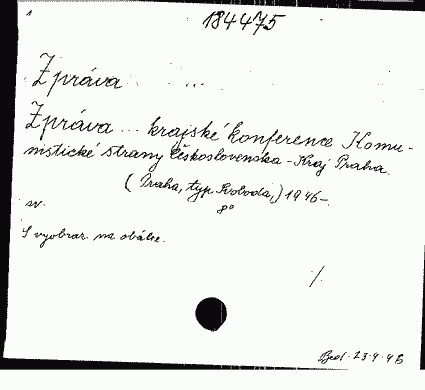 184475
Zpráva ...
Zpráva ... krajské konference Komu-
nistické strany Československa - Kraj Praha.
(Praha, typ. Svoboda,) 1946-.
8°
sv.
S vyobraz. na obálce.
/.
23.4.48